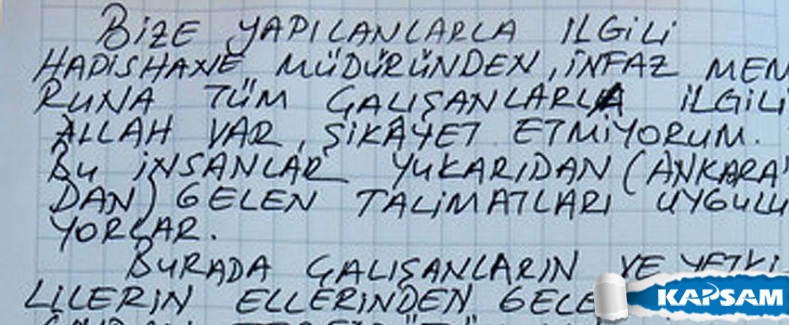 BİZE YAPILANLARLA İLGİLİ
HAPİSHANE MÜDÜRÜNDEN, İNFAZ MEM
RUNA TÜM ÇALIŞANLARLA İLGİLİ
ALLAH VAR, ŞİKÂYET ETMİYORUM.
BU İNSANLAR YUKARIDAN (ANKARA'
DAN) GELEN TALİMATLARI UYGULU
YORLAR.
BURADA ÇALIŞANLARIN VE YETKİ
LİLERİN ELLERİNDEN GELE
KAPSAM